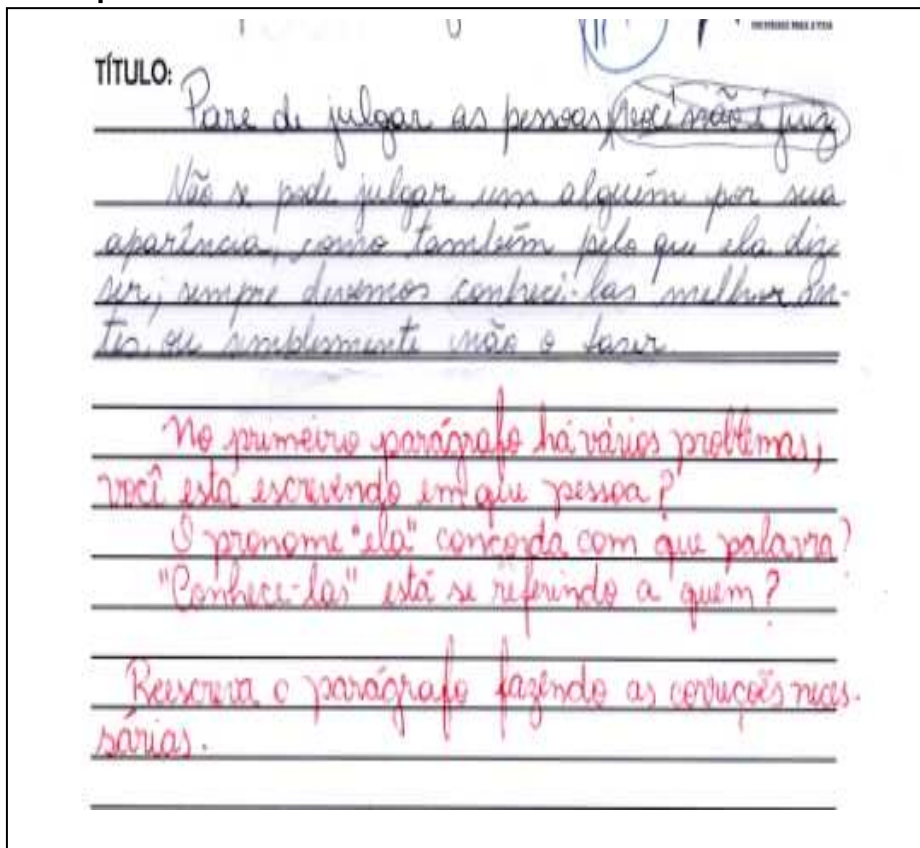 TÍTULO:
Pare de julgar as pessoas, você não é juiz
Não se pode julgar um alguém por sua
aparência, como também pelo que ela dize
ser, sempre devemos conhecê-las melhor an-
tes, ou simplesmente não o fazer.
No primeiro parágrafo há vários problemas,
você está escrevendo em que pessoa?
O pronome "ela" concorda com que palavra?
"Conhece-las" está se referindo a quem?
Reescreva o parágrafo fazendo as correções neces-
sárias.